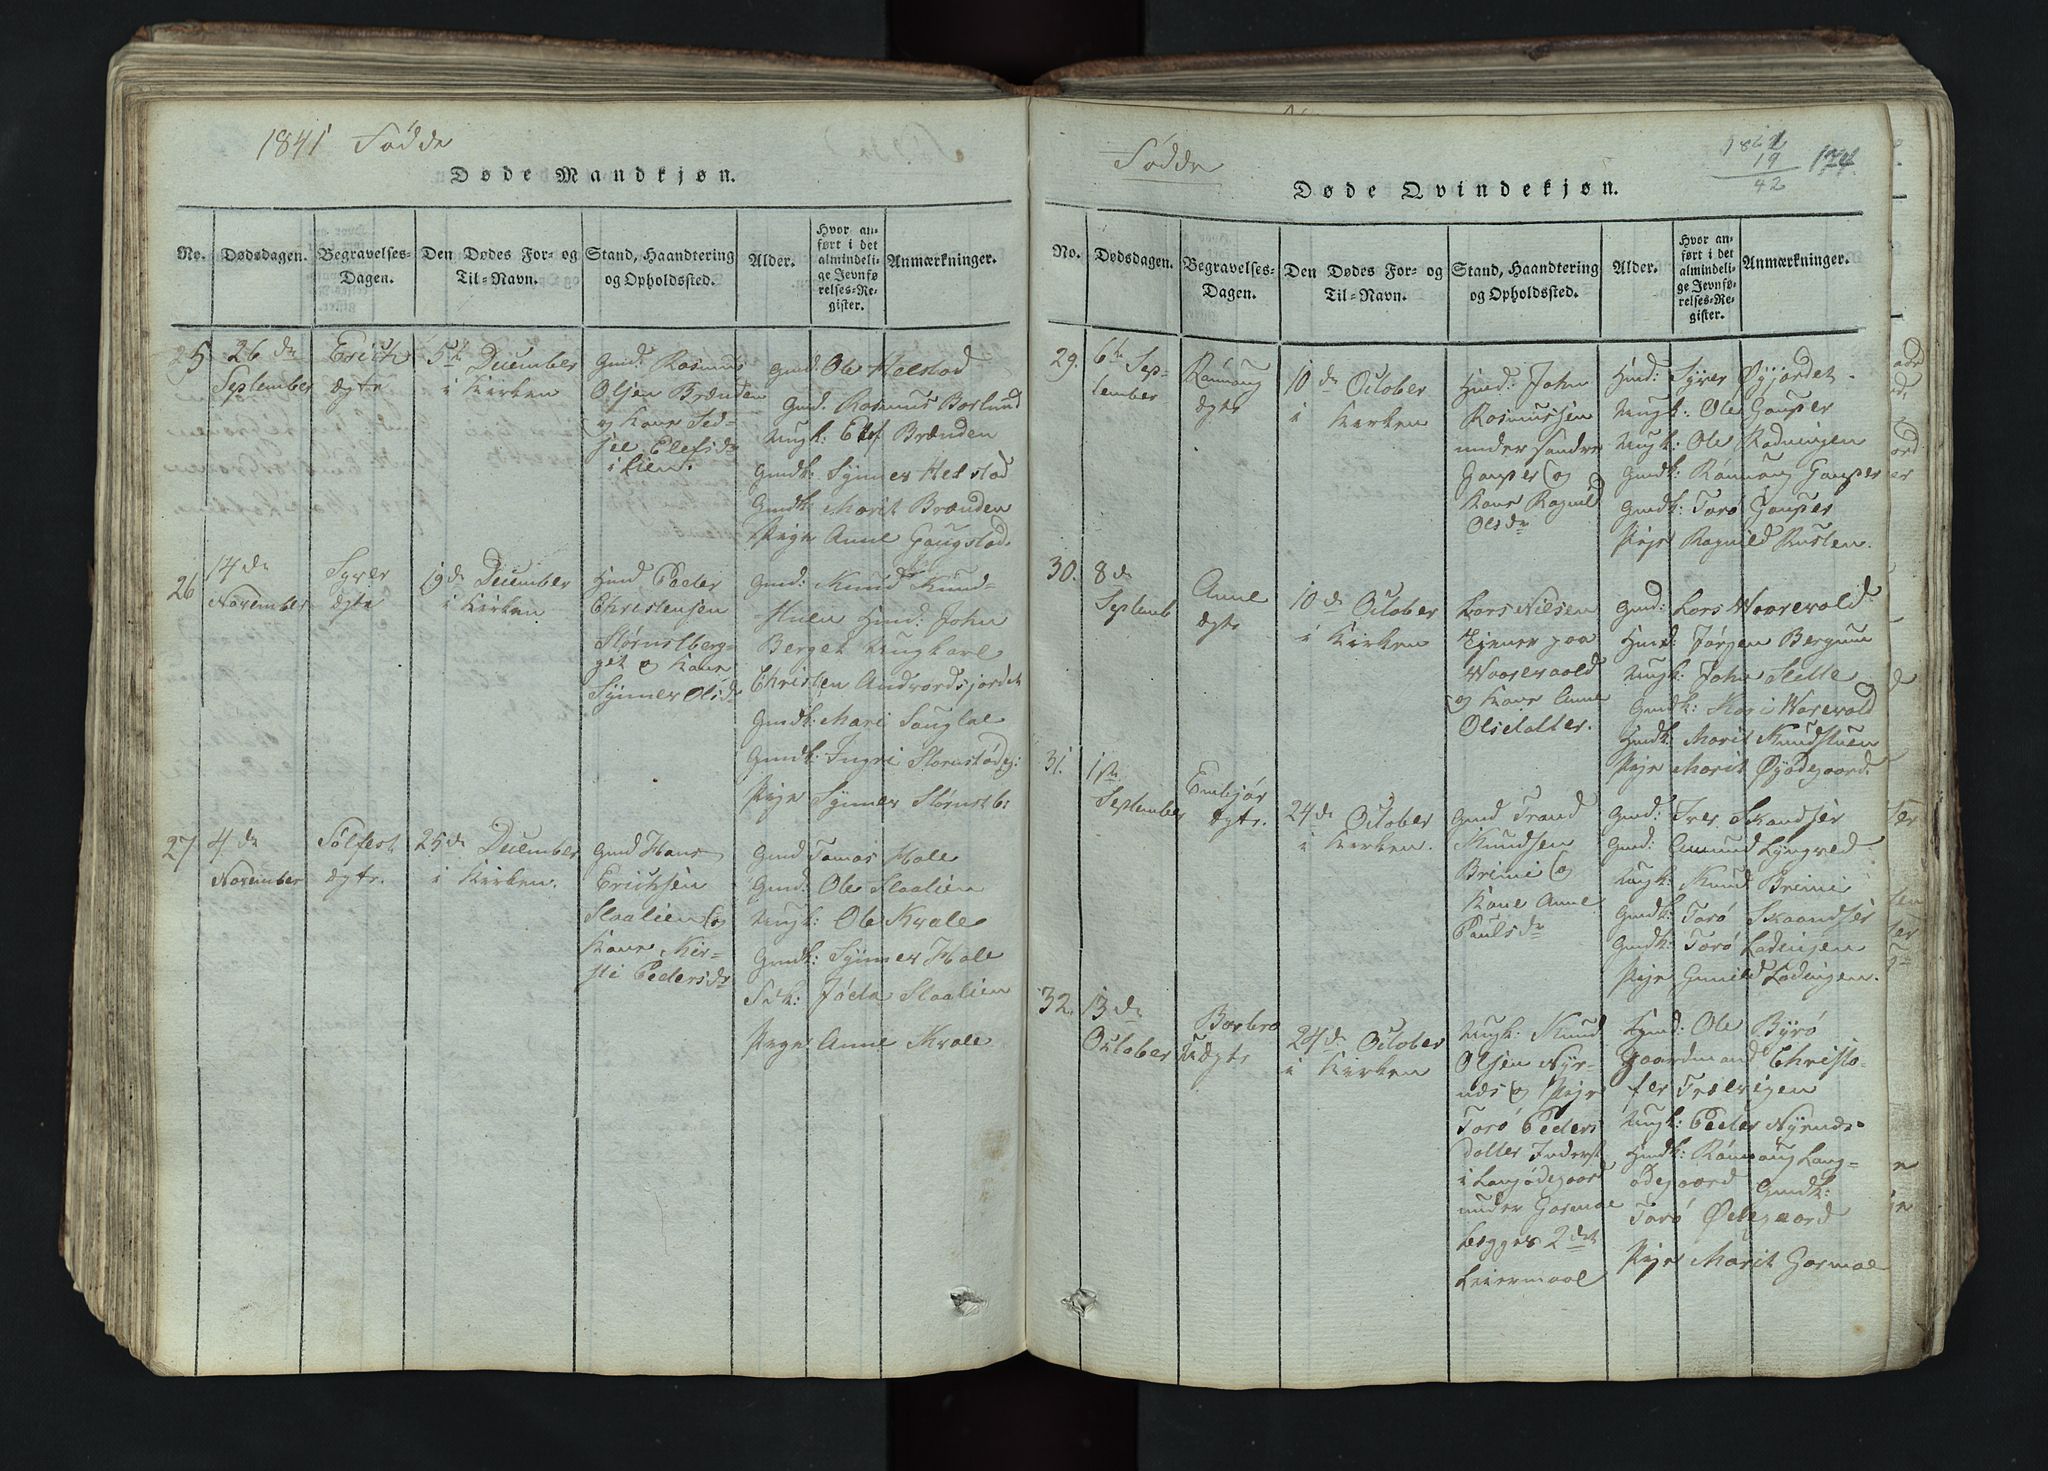 1841 Fødde
Døde Mandkjøn.
No.
Dødsdagen.
Begravelses-
Dagen.
Den Dødes For- og
Til-Navn.
Stand, Haandtering
og Opholdssted.
Alder.
Hvor an-
ført i det
almindeli-
ge Jevnfø-
relses-Re-
gister.
Anmærkninger.
25
26de
September
Erich
ægte
5te December
i Kirken
Gmd: Rasmus
Olsen Brænden
og Kone Sed-
sel Elefsdr
i Lien.
Gmd: Ole Holstad
Gmd. Rasmus Borlund
Ungk: Elef Brænden
Gmdk: Synnev Holstad
Gmdk: Marit Brænden
Pige Anne Gaugstad
26
14de
November
Syver
ægte
19de December
i Kirken
Hmd Peder
Christensen
Størrustberg-
get og Kone
Synnev Olsdr
Gmd: Knud Knud-
stuen Hmd: John
Berget Ungkarl
Christen Andvordsjordet
Gmdk: Mari Sauglae
Gmdk: Ingri
Pige Synnev
27
4de
November
Sølfest
ægte.
25de December
i Kirken.
Gmd Hans
Erichsen
Staalien og
Kone Kir-
sti Pedersdr
Gmd Tomas Hole
Gmd: Ole Staalien
Ungk: Ole Kvale
Gmdk: Synnev Hole
Jøda Staalien
Pige Anne Kvale
Fødde
1861
19
42
174.
Døde Qvindekjøn.
No.
Dødsdagen.
Begravelses-
Dagen.
Den Dødes For- og
Til-Navn.
Stand, Haandtering
og Opholdssted.
Alder.
Hvor an-
ført i det
almindeli-
ge Jevnfø-
relses-Re-
gister.
Anmærkninger.
29.
6te Sep-
tember
Rønnoug
ægte
10de October
i Kirken
Hmd: John
Rasmussen
under Søndre
Gauper og
Kone Ragnild
Olsdr
Hmd: Syver Øyjordet
Ungk: Ole Gauper
Ungk: Ole Rødningen
Gmdk: Rønnoug Gauper
Gmdk: Torø Gauper
Pige Ragnild Rusten.
30.
8de
Septemb
Anne
ægte
10de October
i Kirken
Lars Nilsen
Ejener paa
Waarevold
og Kone Anne
Olsdatter.
Gmd: Lars Waarevold
Hmd: Jørgen Bergum
Ungk: John Stette
Gmdk: Kari Warevold
Hmdk: Marit Knudstuen
Pige Marit Øyødegaard.
31.
1ste
September
Embjør
ægte.
24de October
i Kirken.
Gmd Trond
Knudsen
Brimi og
Kone Anne
Paulsdr
Gmd: Iver Skandser
Gmd: Amund Lyngved
Ungk: Knud Brimi
Gmdk: Torø Skaandser
Gmdk: Torø Ladingen
Pige Gunild Ladingen.
32.
13de
October
Barbro
Uægte
24de October
i Kirken
Ungk: Knud
Olsen Nyr-
nds og Pige
Torø Peders
datter Inderst
i Langødegaard
under Garmoe
begges 2det
Leiermaal
Gmd: Ole Byrø
Gaardmand Christo-
fer
Ungk: Peder Nyrnds-
Hmdk: Rønnoug Lang-
ødegaard Gmdk:
Torø Ødegaard
Pige Marit Garmoe